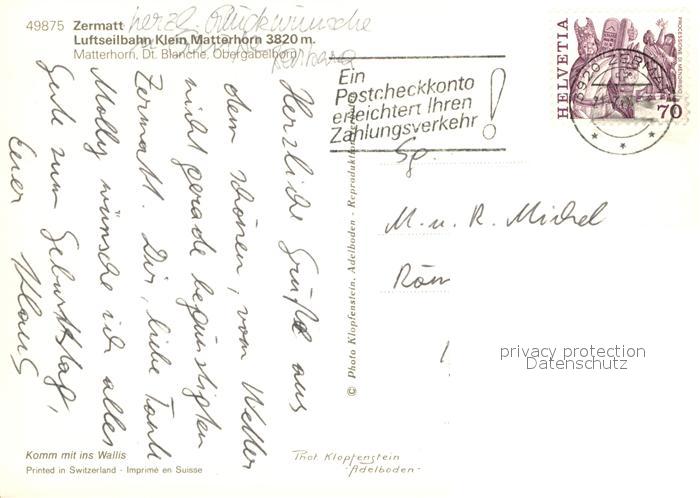 49875 Zermatt
Luftseilbahn Klein Matterhorn 3820 m.
Matterhorn, Dt. Blanche, Obergabelhorn
herzl. Glückwünsche
Barbara
Herzliche Grüße aus
dem schönen, vom Wetter
nicht gerade begünstigten
Zermatt. Dir, liebe Tante
Molly wünsche ich alles
Gute zum Geburtstag,
Euer Klaus
Komm mit ins Wallis
Printed in Switzerland - Imprimé en Suisse
Phot. Klopfenstein
-Adelboden-
© Photo Klopfenstein, Adelboden - Reproduktion
Ein
Postcheckkonto
erleichtert Ihren
Zahlungsverkehr !
HELVETIA
70
3920 ZERMATT
M. u. R. Michel
privacy protection
Datenschutz